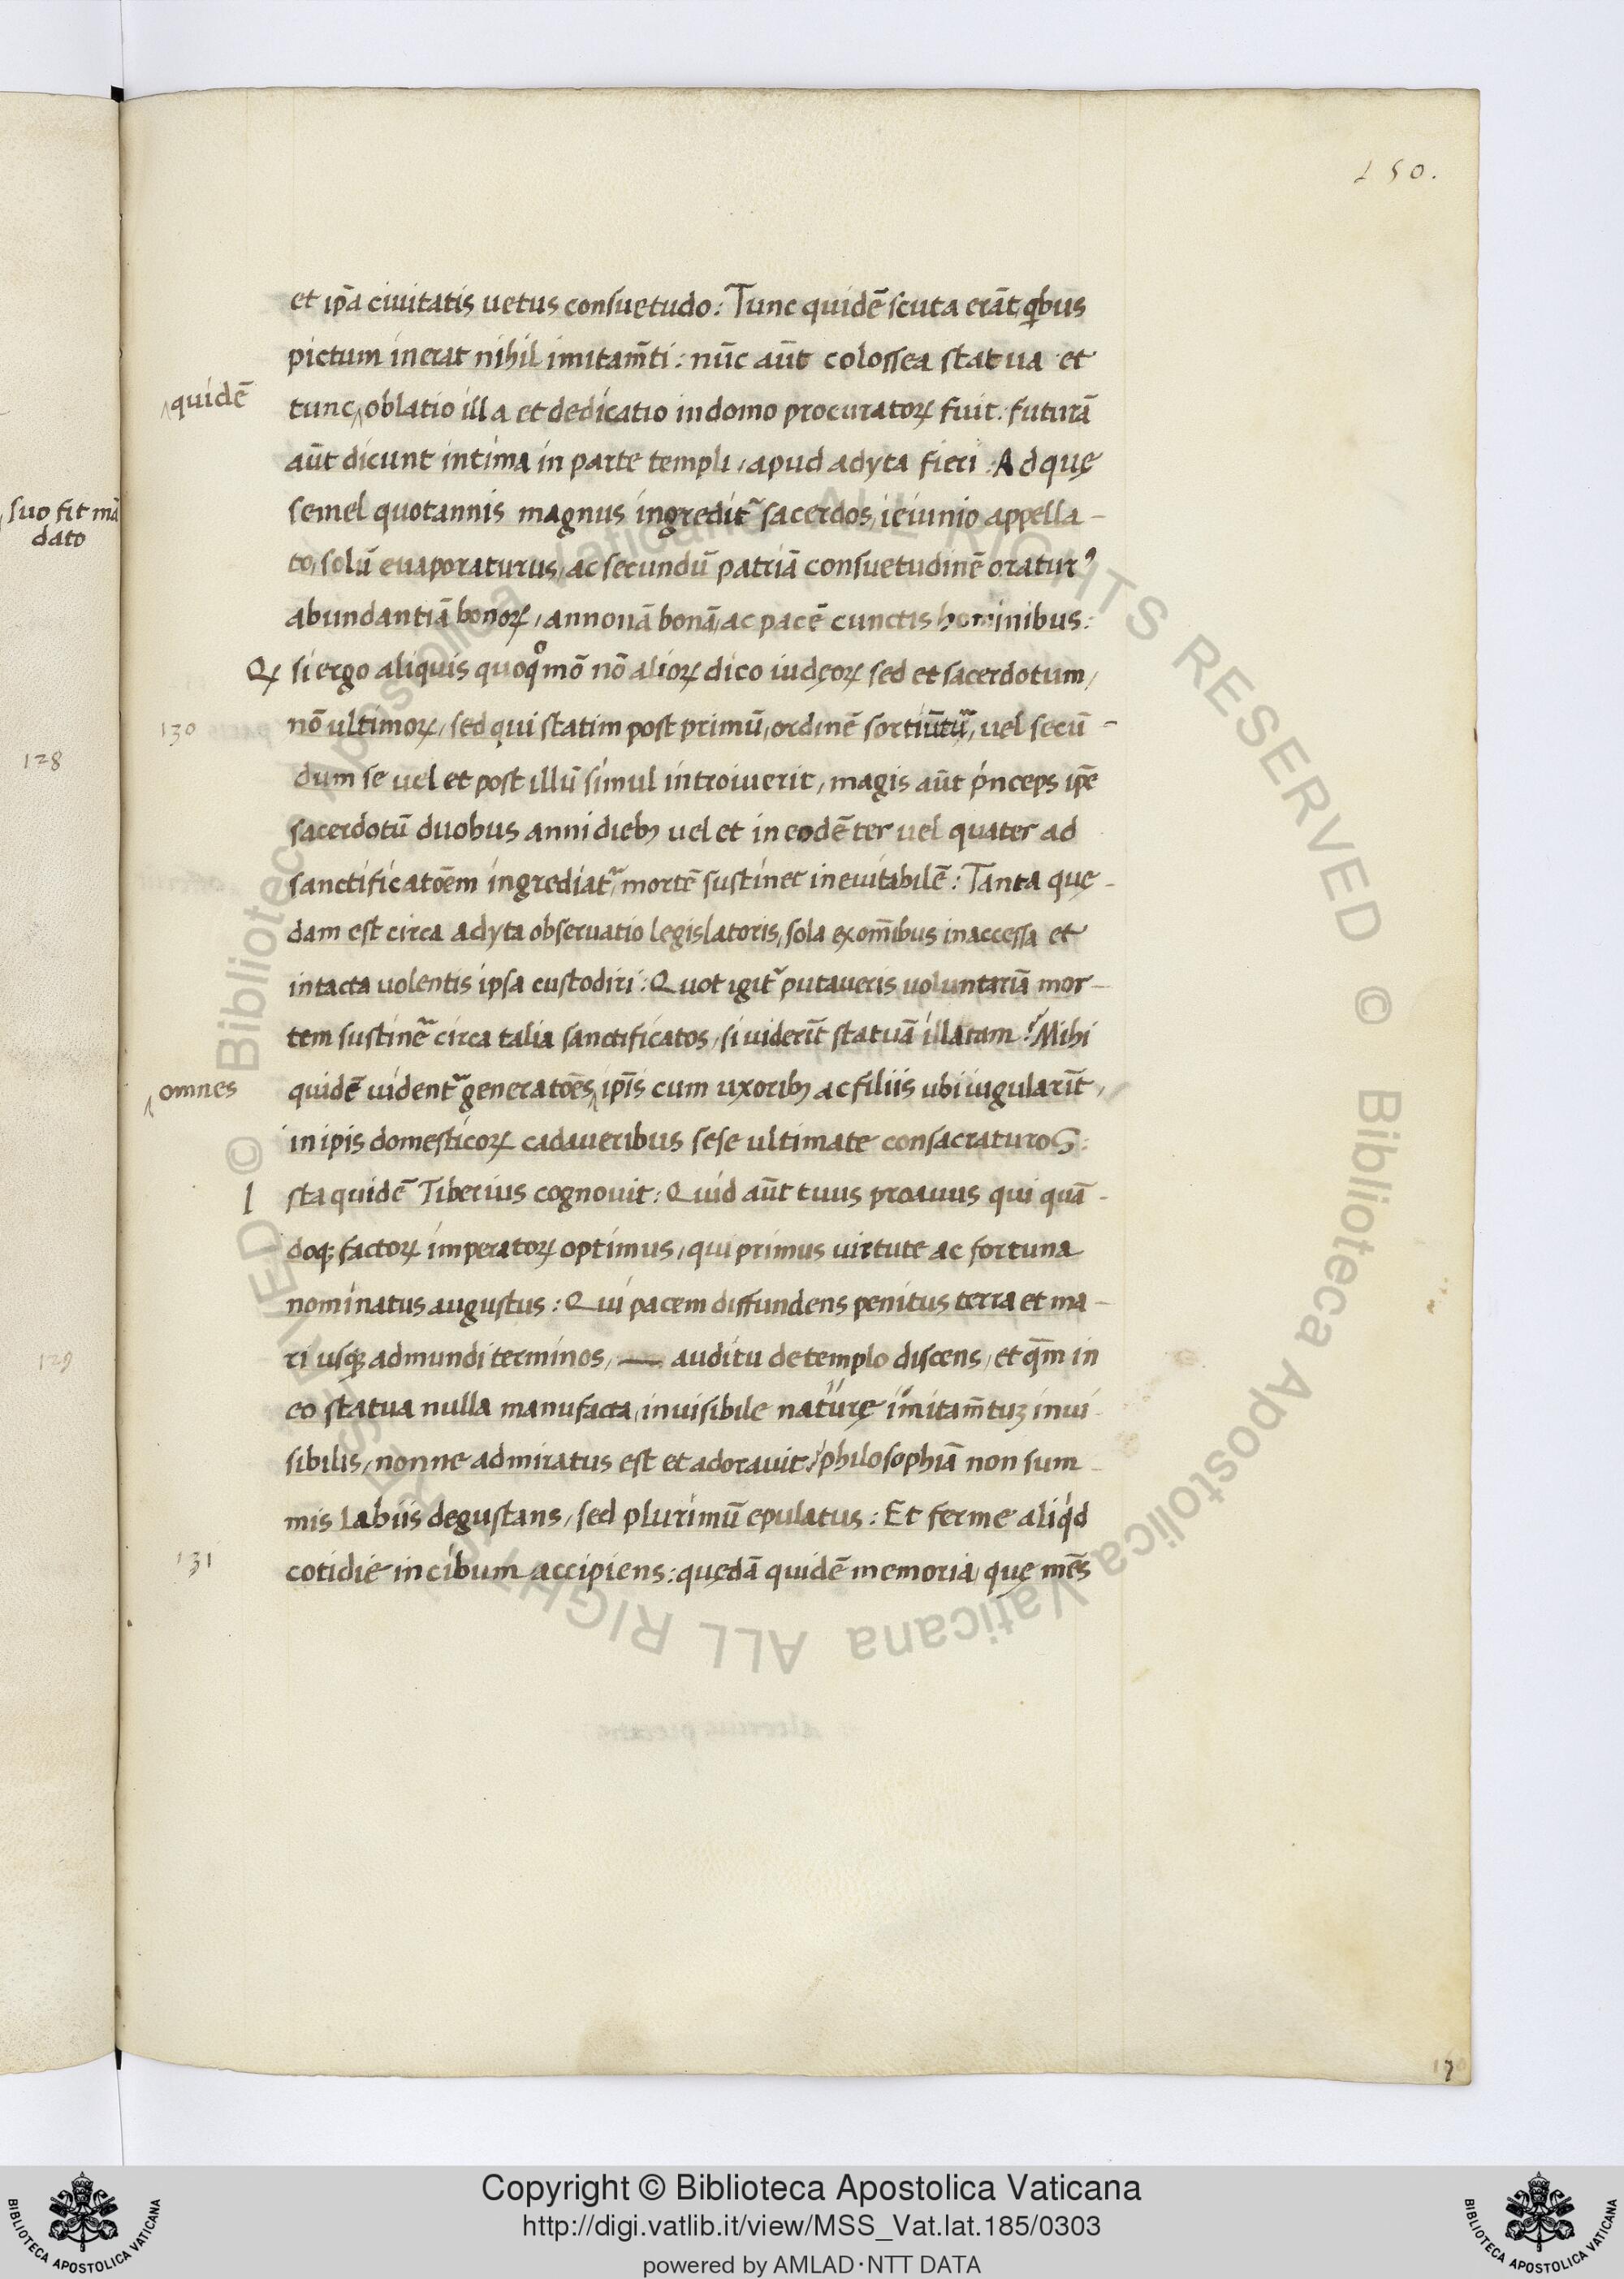 150.
et ip̄a ciuitatis uetus consuetudo: Tunc quidē scuta erāt, qbus
pictum inerat nihil imitam̄ti: nūc aūt colossea statua et
‸quidē
tunc‸ oblatio illa et dedicatio in domo procuratoꝝ fuit: futurā
aūt dicunt intima in parte templi, apud adyta fieri: Ad quę
suo fit mā
dato
semel quotannis magnus ingredit᷑ sacerdos, ieiunio appella-
to, solū euaporaturus, ac secundū patriā consuetudinē oraturꝰ
abundantiā bonoꝝ, annonā bonā, ac pacē cunctis hominibus:
Qꝫ si ergo aliquis quoqͦmō nō alioꝝ dico iudęoꝝ sed et sacerdotum,
130
nō ultimoꝝ, sed qui statim post primū, ordinē sortiūtur, uel secū-
128
dum se uel et post illū simul introiuerit, magis aūt pͥnceps ip̄e
sacerdotū duobus anni diebꝫ uel et in eodē ter uel quater ad
sanctificatōem ingrediat᷑, mortē sustinet ineuitabilē: Tanta quę-
dam est circa adyta obseruatio legislatoris, sola ex om̄ibus inaccessa et
intacta uolentis ipsa custodiri: Quot igit᷑ putaueris uoluntariā mor-
tem sustinē circa talia sanctificatos, si uiderīt statuā illatam? Mihi
‸omnes
quidē uident᷑ generatōes‸ ip̄is cum uxoribꝫ ac filiis ubi iugularīt,
in ipis domesticoꝝ cadaueribus sese ultimate consacraturos:
I sta quidē Tiberius cognouit: Quid aūt tuus proauus qui quā-
doqꝫ factoꝝ imperatoꝝ optimus, qui primus uirtute ac fortuna
nominatus augustus: Qui pacem diffundens penitus terra et ma-
129
ri usqꝫ ad mundi terminos, — auditu de templo discens, et qm̄ in
eo statua nulla manufacta, inuisibile naturę imitam̄tuꝫ inui
sibilis, nonne admiratus est et adorauit? philosophiā non sum-
mis labiis degustans, sed plurimū epulatus: Et ferme aliqͥd
131
cotidie in cibum accipiens: quędā quidē memoria, quę mēs
Copyright © Biblioteca Apostolica Vaticana
http://digi.vatlib.it/view/MSS_Vat.lat.185/0303
powered by AMLAD·NTT DATA
BIBLIOTECA APOSTOLICA VATICANA
BIBLIOTECA APOSTOLICA VATICANA
© Biblioteca Apostolica Vaticana ALL RIGHTS RESERVED © Biblioteca Apostolica Vaticana ALL RIGHTS RESERVED